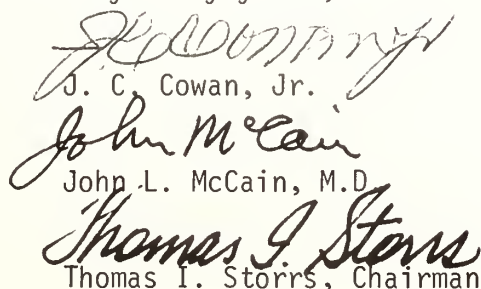 J. C. Cowan, Jr.
John McCain
John L. McCain, M.D.
Thomas I. Storrs
Thomas I. Storrs, Chairman